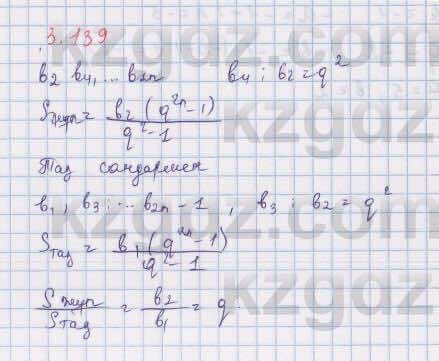 3.139
b₂ b₄, ... b₂ₙ    b₄ : b₂ = q²
Sжұп = b₂ (q²ⁿ - 1) / q² - 1
Тақ сандармен
b₁, b₃ ; ... b₂ₙ - 1 , b₃ : b₂ = q²
Sтақ = b₁ (q²ⁿ - 1) / q² - 1
Sжұп / Sтақ = b₂ / b₁ = q
kzgdz
kzgdz
kzgdz
kzgdz